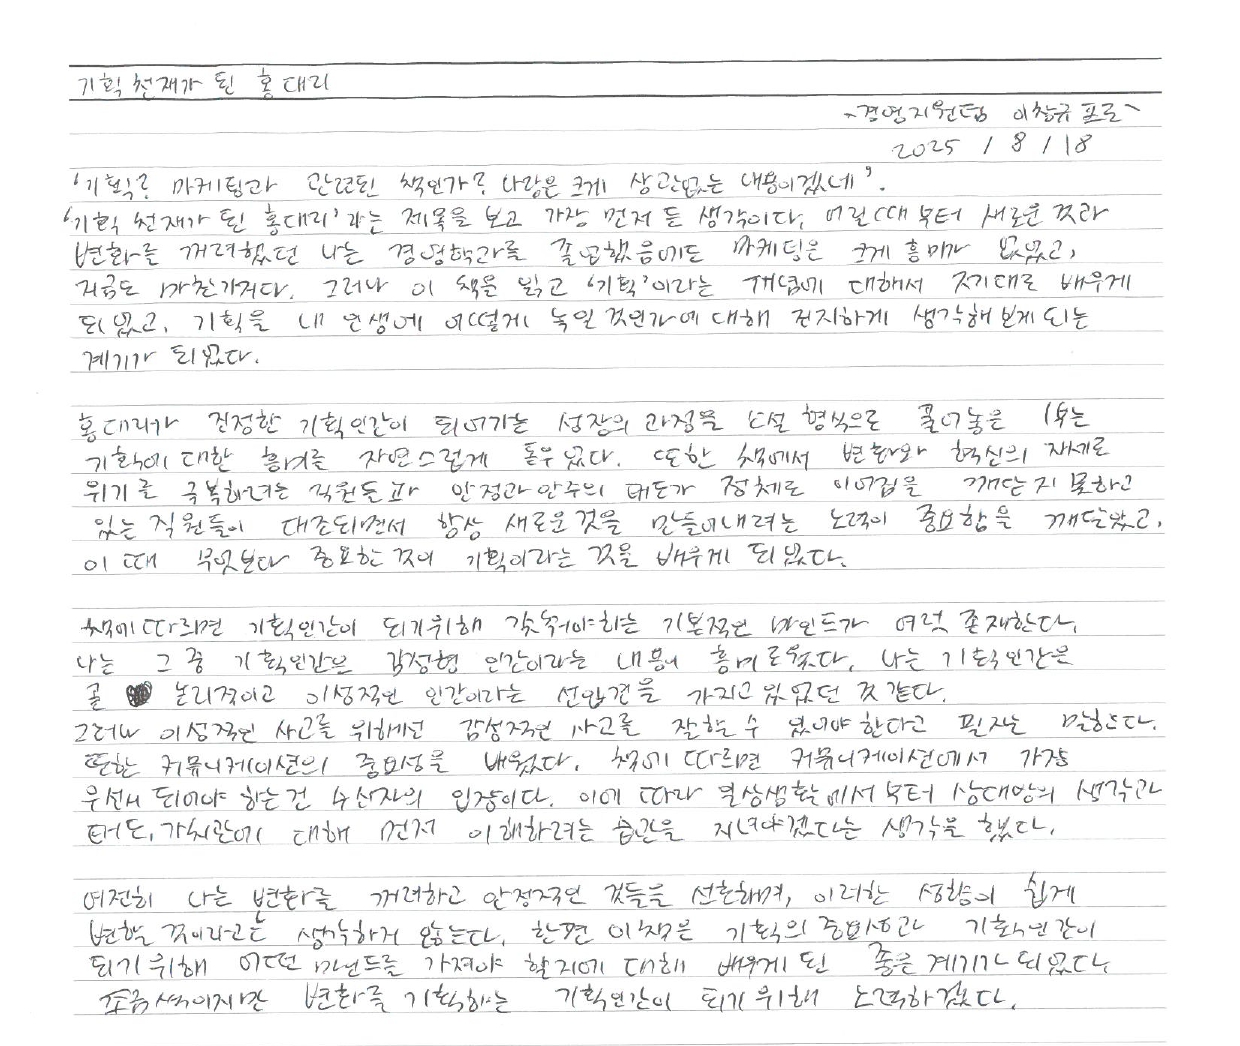 기획 천재가 된 홍대리
-경영지원팀 이창규 프로-
2025 / 8 / 18
'기획? 마케팅과 관련된 책인가? 나랑은 크게 상관없는 내용이겠네'.
'기획 천재가 된 홍대리'라는 제목을 보고 가장 먼저 든 생각이다. 어릴때부터 새로운 것과
변화를 꺼려했던 나는 경영학과를 졸업했음에도 마케팅은 크게 흥미가 없었고,
지금도 마찬가지다. 그러나 이 책을 읽고 '기획'이라는 개념에 대해서 제대로 배우게
되었고, 기획을 내 인생에 어떻게 녹일 것인가에 대해 진지하게 생각해 보게 되는
계기가 되었다.
홍대리가 진정한 기획인간이 되어가는 성장의 과정을 소설 형식으로 풀어놓은
기획에 대한 흥미를 자연스럽게 돋우었다. 또한 책에서 변화와 혁신의 자세로
위기를 극복하려는 직원들과 안정과 안주의 태도가 정체로 이어짐을 깨닫지 못하고
있는 직원들이 대조되면서 항상 새로운것을 만들어내려는 노력이 중요함을 깨달았고,
이 때 무엇보다 중요한 것이 기획이라는 것을 배우게 되었다.
책에 따르면 기획인간이 되기위해 갖춰야하는 기본적인 마인드가 여럿 존재한다.
나는 그 중 기획인간은 감성형 인간이라는 내용이 흥미로웠다. 나는 기획인간은
곧 논리적이고 이성적인 인간이라는 선입견을 가지고 있었던 것 같다.
그러나 이성적인 사고를 위해선 감성적인 사고를 잘할 수 있어야 한다고 필자는 말한다.
또한 커뮤니케이션의 중요성을 배웠다. 책에 따르면 커뮤니케이션에서 가장
우선시 되어야 하는건 수신자의 입장이다. 이에 따라 일상생활에서부터 상대방의 생각과
태도, 가치관에 대해 먼저 이해하려는 습관을 지녀야겠다는 생각을 했다.
여전히 나는 변화를 꺼려하고 안정적인 것들을 선호하며, 이러한 성향이 쉽게
변할 것이라고는 생각하지 않는다. 한편 이책은 기획의 중요성과 기획인간이
되기위해 어떤 마인드를 가져야 할지에 대해 배우게 된 좋은 계기가 되었다.
조금씩이지만 변화를 기획하는 기획인간이 되기 위해 노력하겠다.